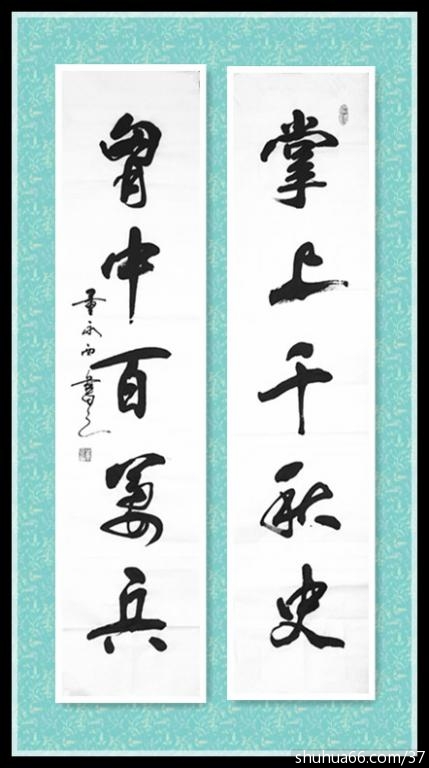 掌上千秋史
胷中百萬兵
永西書
shuhua66.com/37